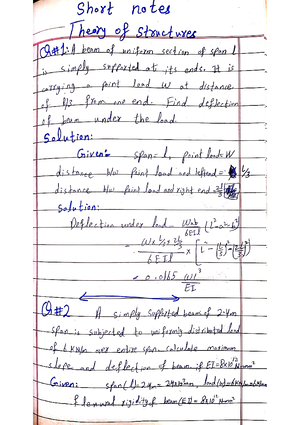 Short notes
Theory of Structures
Q#1: A beam of uniform section of span l
is simply supported at its ends. It is
carrying a point load W at distance
of l/3 from one end. Find deflection
of beam under the load.
Solution:
Given: span = l, point load = W
distance b/w point load and left end = l/3
distance b/w point load and right end = 2l/3
Solution:
Deflection under load = Wab/6EIl (l²-a²-b²)
= W×l/3×2l/3 / 6EIl × [l² - (l/3)² - (2l/3)²]
= 0.0165 Wl³/EI
Q#2 A simply supported beam of 2.4m
span is subjected to uniformly distributed load
of 6 KN/m over entire span. calculate maximum
slope and deflection of beam if EI = 8x10¹² N-mm²
Given: span (l) = 2.4m =
flexural rigidity of beam (EI) = 8x10¹² N-mm²